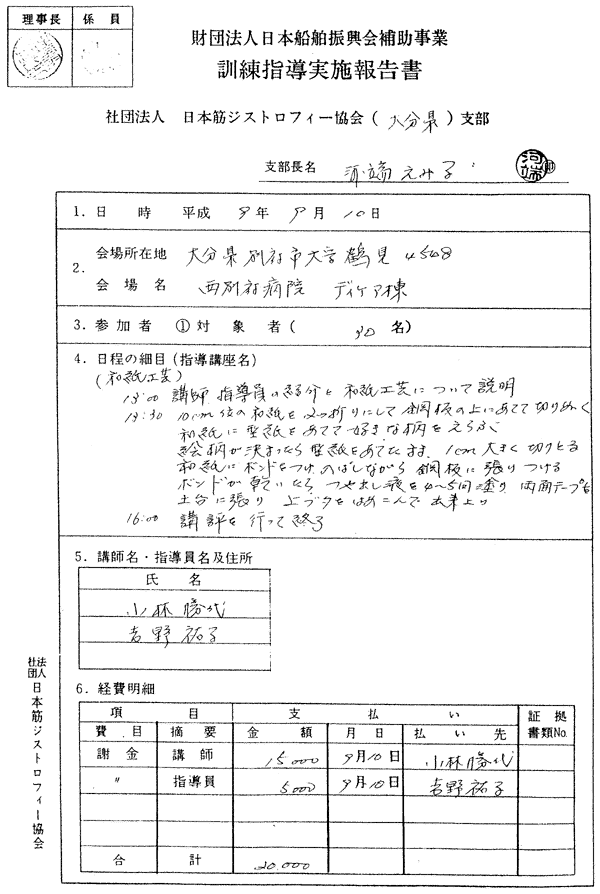 理事長 係員
財団法人日本船舶振興会補助事業
訓練指導実施報告書
社団法人 日本筋ジストロフィー協会(大分県)支部
支部長名 河端えみ子
河端
1. 日 時 平成 9年 9月 10日
2. 会場所在地 大分県別府市大字鶴見4548
会場名 西別府病院 デイケア棟
3. 参加者 ①対象者( 30名)
4. 日程の細目(指導講座名)
(和紙工芸)
13:00 講師 指導員の紹介と和紙工芸について説明
13:30 10cm位の和紙を2つ折りにして銅板の上にあてて切りぬく
和紙に型紙をあてて好きな柄をえらぶ
絵柄が決まったら型紙をあてたまま 1cm大きく切りとる
和紙にボンドをつけのばしながら銅板に張りつける
ボンドが乾いたら つや出し液を4〜5回塗り 両面テープを
土台に張り 上ブタをはめこんで出来上り
16:00 講評を行って終了
5. 講師名・指導員名及住所
氏名
小林勝代
吉野祐子
6. 経費明細
項目 支払い 証拠書類No.
費目 摘要 金額 月日 払い先
謝金 講師 15,000 9月10日 小林勝代
〃 指導員 5,000 9月10日 吉野祐子
合計 20,000
社団法人 日本筋ジストロフィー協会